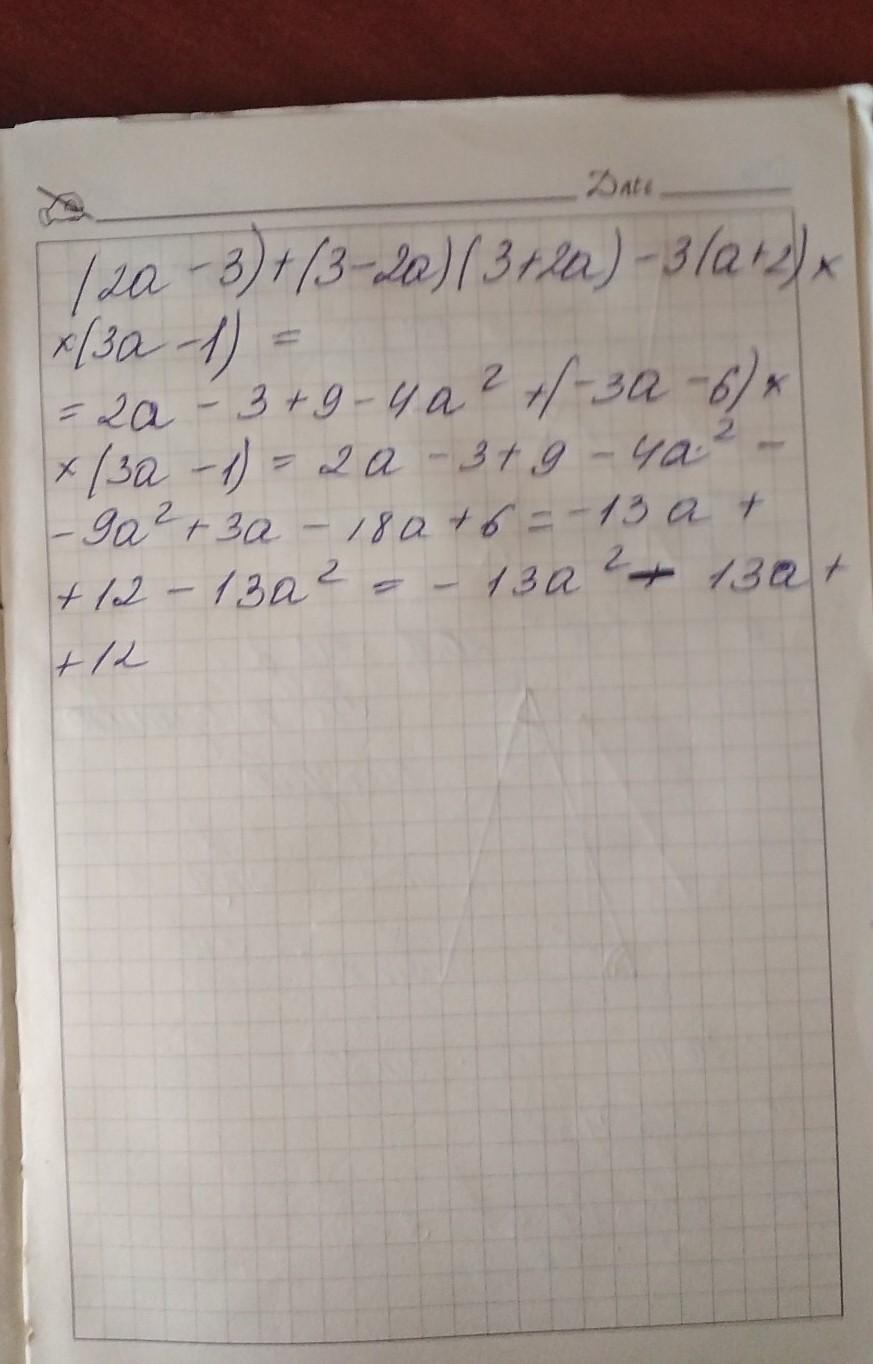 Date
(2a - 3) + (3 - 2a)(3 + 2a) - 3(a + 2) ×
× (3a - 1) =
= 2a - 3 + 9 - 4a² + (-3a - 6) ×
× (3a - 1) = 2a - 3 + 9 - 4a² -
- 9a² + 3a - 18a + 6 = -13a +
+ 12 - 13a² = - 13a² - 13a +
+ 12